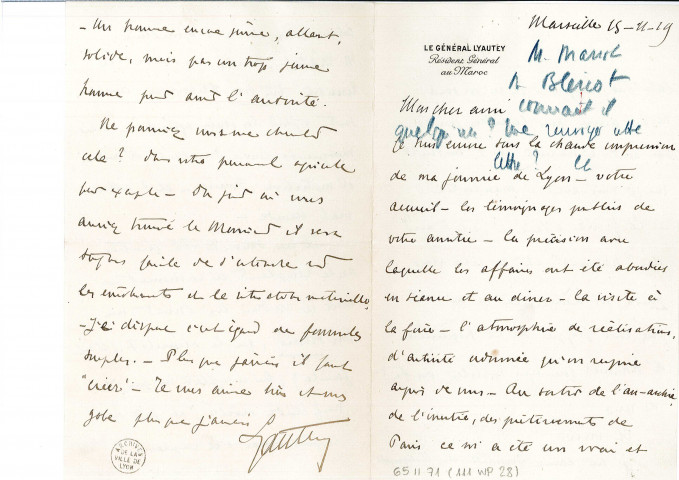 Marseille 15-11-19
LE GÉNÉRAL LYAUTEY
Résident Général
au Maroc
M. Blériot
Mon cher ami connait il
quelqu'un? Me renvoyer cette
lettre?
Je suis encore sous la chaude impression
de ma journée de Lyon - votre
accueil - les témoignages publics de
votre amitié - la précision avec
laquelle les affaires ont été abordées
en séance et au diner - la visite à
la foire - l'atmosphère de réalisations,
d'activité ordonnée qu'on respire
auprès de vous - Au sortir de l'an-archie,
de l'inertie, des piétinements de
Paris ce m'a été un vrai et
- Un homme encore jeune, allant,
solide, mais pas un trop jeune
homme pour avoir l'autorité.
Ne pourriez vous me chercher
cela? Dans votre personnel
par exemple - Du jour où vous
auriez trouvé le Monsieur il sera
toujours facile de s'entendre sur
les émoluments et la situation matérielle,
- J'ai à cet égard des formules
souples. - Plus que jamais il faut
"créer" - Je vous aime très et vous
gobe plus que jamais
Lyautey
ARCHIVES
DE LA
VILLE DE
LYON
65 II 71 (111 WP 28)